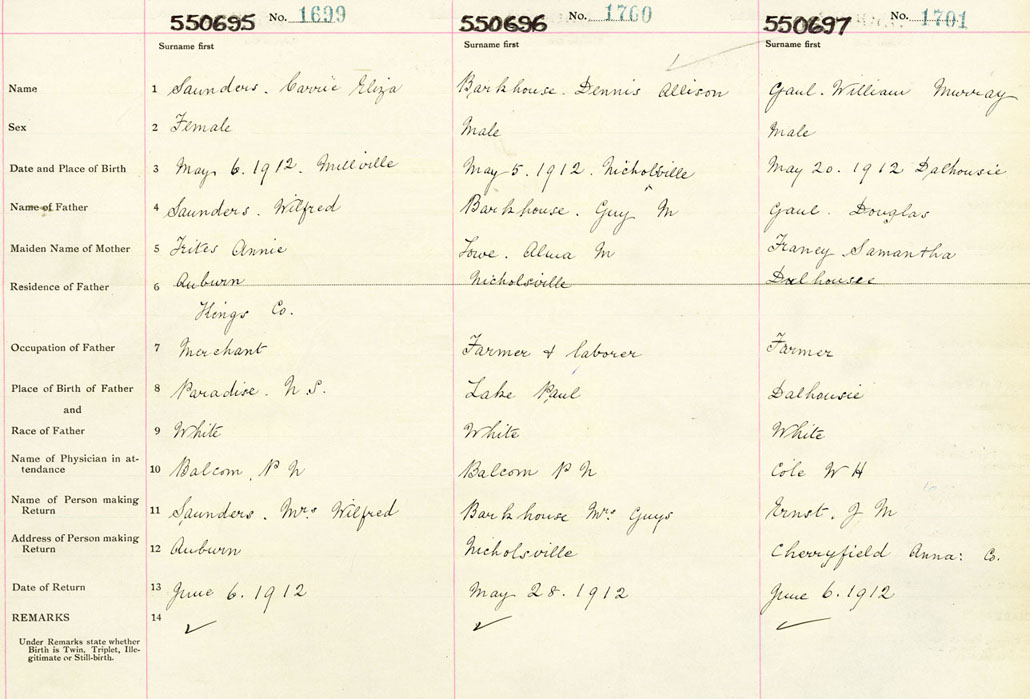 550695 No. 1699 550696 No. 1700 550697 No. 1701
Surname first Surname first Surname first
Name 1 Saunders. Carrie Eliza Barkhouse. Dennis Allison Gaul. William Murray
Sex 2 Female Male Male
Date and Place of Birth 3 May 6. 1912. Millville May 5. 1912. Nicholville May 20. 1912 Dalhousie
Name of Father 4 Saunders. Wilfred Barkhouse. Guy M Gaul. Douglas
Maiden Name of Mother 5 Annie Lowe. Alma M Franey Samantha
Residence of Father 6 Auburn Nicholsville Dalhousee
Kings Co.
Occupation of Father 7 Merchant Farmer & laborer Farmer
Place of Birth of Father 8 Paradise. N S. Lake Paul Dalhousie
and
Race of Father 9 White White White
Name of Physician in at-
tendance 10 Balcom P N Balcom P N Cole W H
Name of Person making
Return 11 Saunders. Mrs Wilfred Barkhouse Mrs Guys Ernst. J M
Address of Person making
Return 12 Auburn Nicholsville Cherryfield Anna: Co.
Date of Return 13 June 6. 1912 May 28. 1912 June 6. 1912
REMARKS 14
Under Remarks state whether
Birth is Twin, Triplet, Ille-
gitimate or Still-birth.